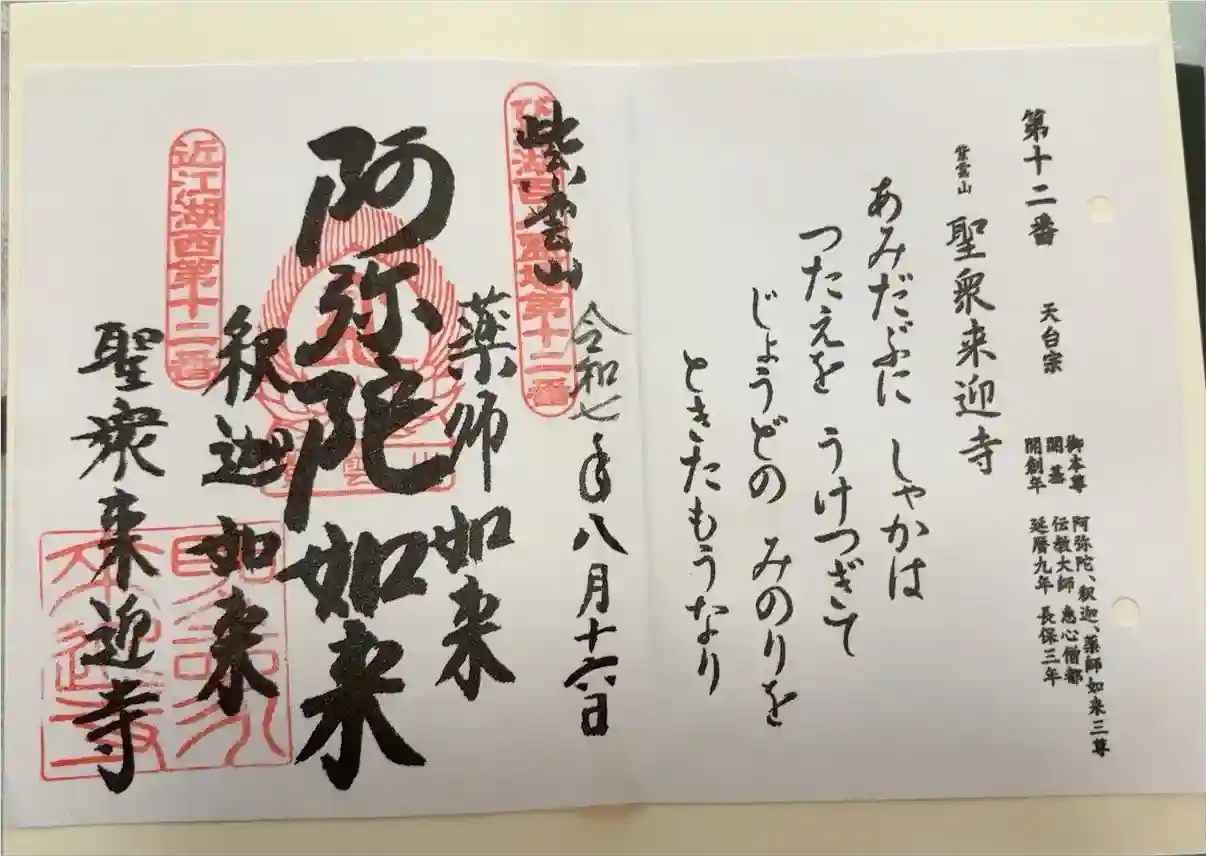 第十二番 天台宗
御本尊 阿弥陀、釈迦、薬師如来三尊
開基 伝教大師 恵心僧都
開創年 延暦九年 長保三年
紫雲山 聖衆来迎寺
あみだぶに しゃかは
つたえを うけつぎて
じょうどの みのりを
ときたもうなり
紫雲山
令和七年八月十六日
薬師如来
阿弥陀如来
釈迦如来
聖衆来迎寺
近江湖西第十二番